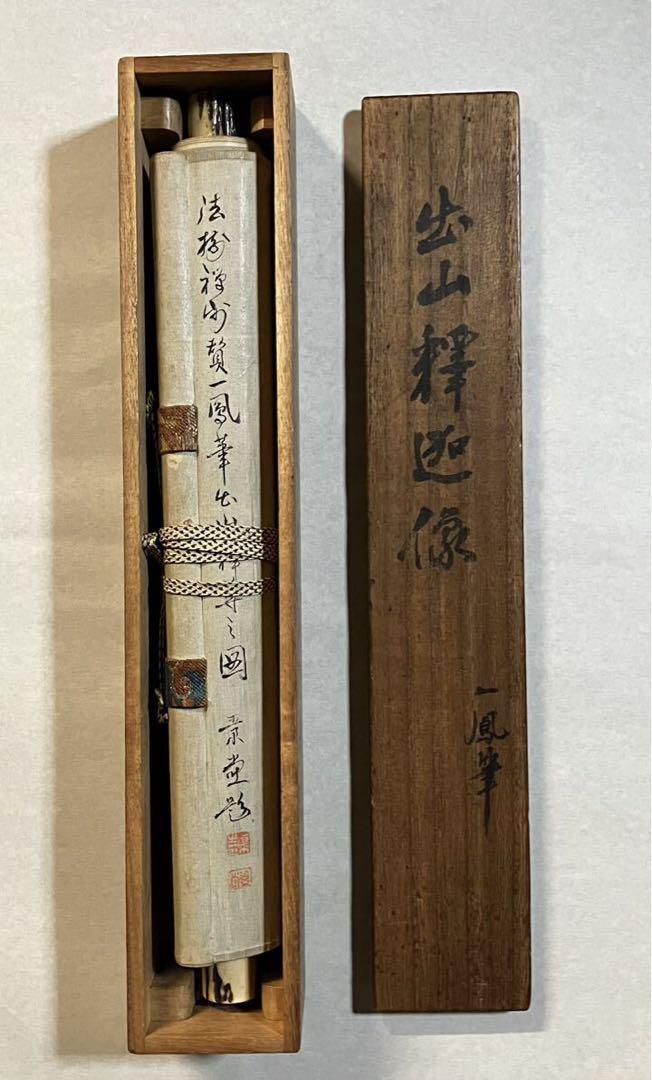 出山釋迦像
一鳳筆
法禅师賛一鳳筆出山釋尊之圖
堂題